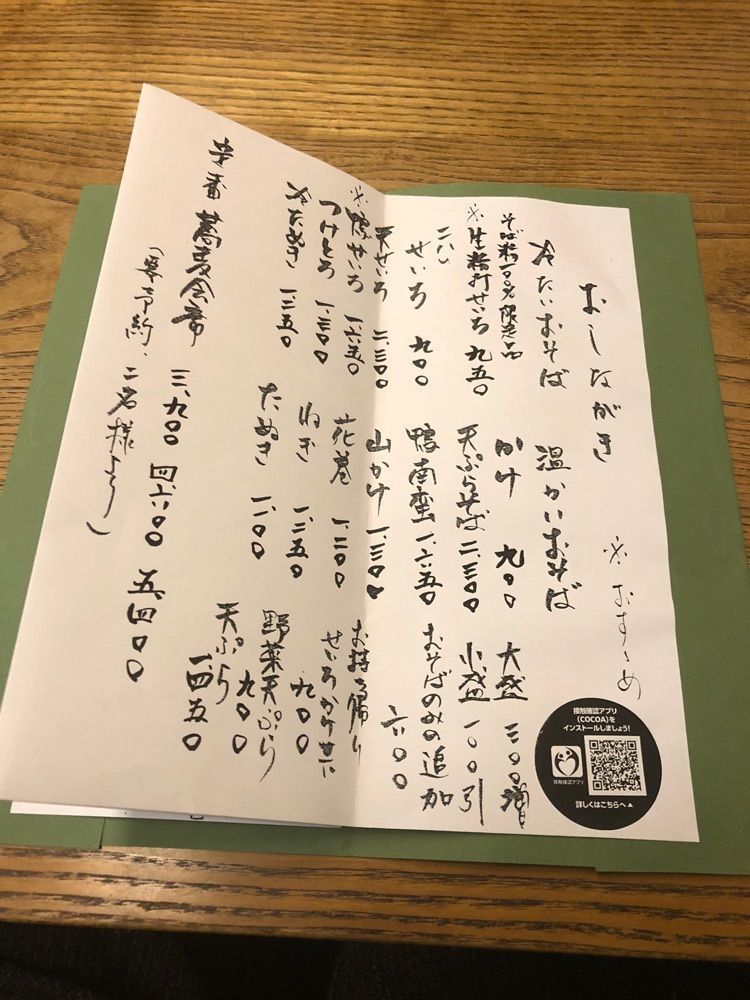 おしながき
※おすゝめ
冷たいおそば
そば粉一〇〇%限定品
※生粉打せいろ 九五〇
二八
せいろ 九〇〇
天せいろ 二、三〇〇
※鴨せいろ 一、六五〇
つけとろ 一、三〇〇
冷たぬき 一、三五〇
温かいおそば
かけ 九〇〇
天ぷらそば 二、三〇〇
鴨南蛮 一、六五〇
山かけ 一、三〇〇
花巻 一、二〇〇
ねぎ 一、二五〇
たぬき 一、一〇〇
大盛 三〇〇増
小盛 一〇〇引
おそばのみの追加
六〇〇
お持ち帰り
せいろかけ共に
九〇〇
野菜天ぷら
九〇〇
天ぷら
一、四五〇
蕎麦会席
三、九〇〇 四、六〇〇 五、四〇〇
(要予約、二名様より)
接触確認アプリ
(COCOA)を
インストールしましょう!
接触確認アプリ
詳しくはこちらへ▲